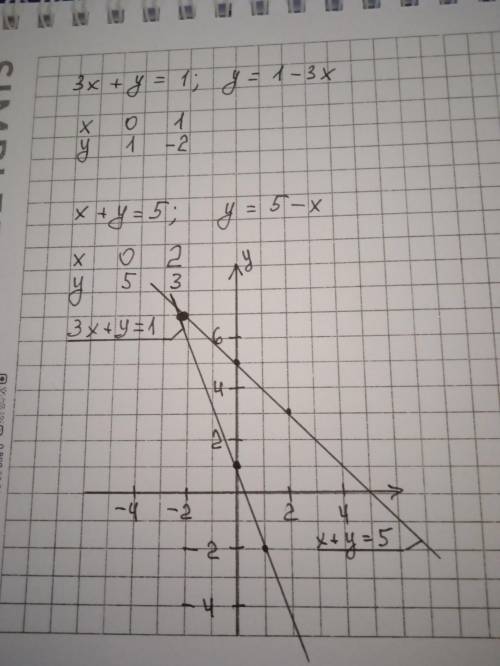 3x + y = 1; y = 1 - 3x
x 0 1
y 1 -2
x + y = 5; y = 5 - x
x 0 2
y 5 3
y
3x+y=1
6
4
2
-4 -2 2 4
x+y=5
-2
-4